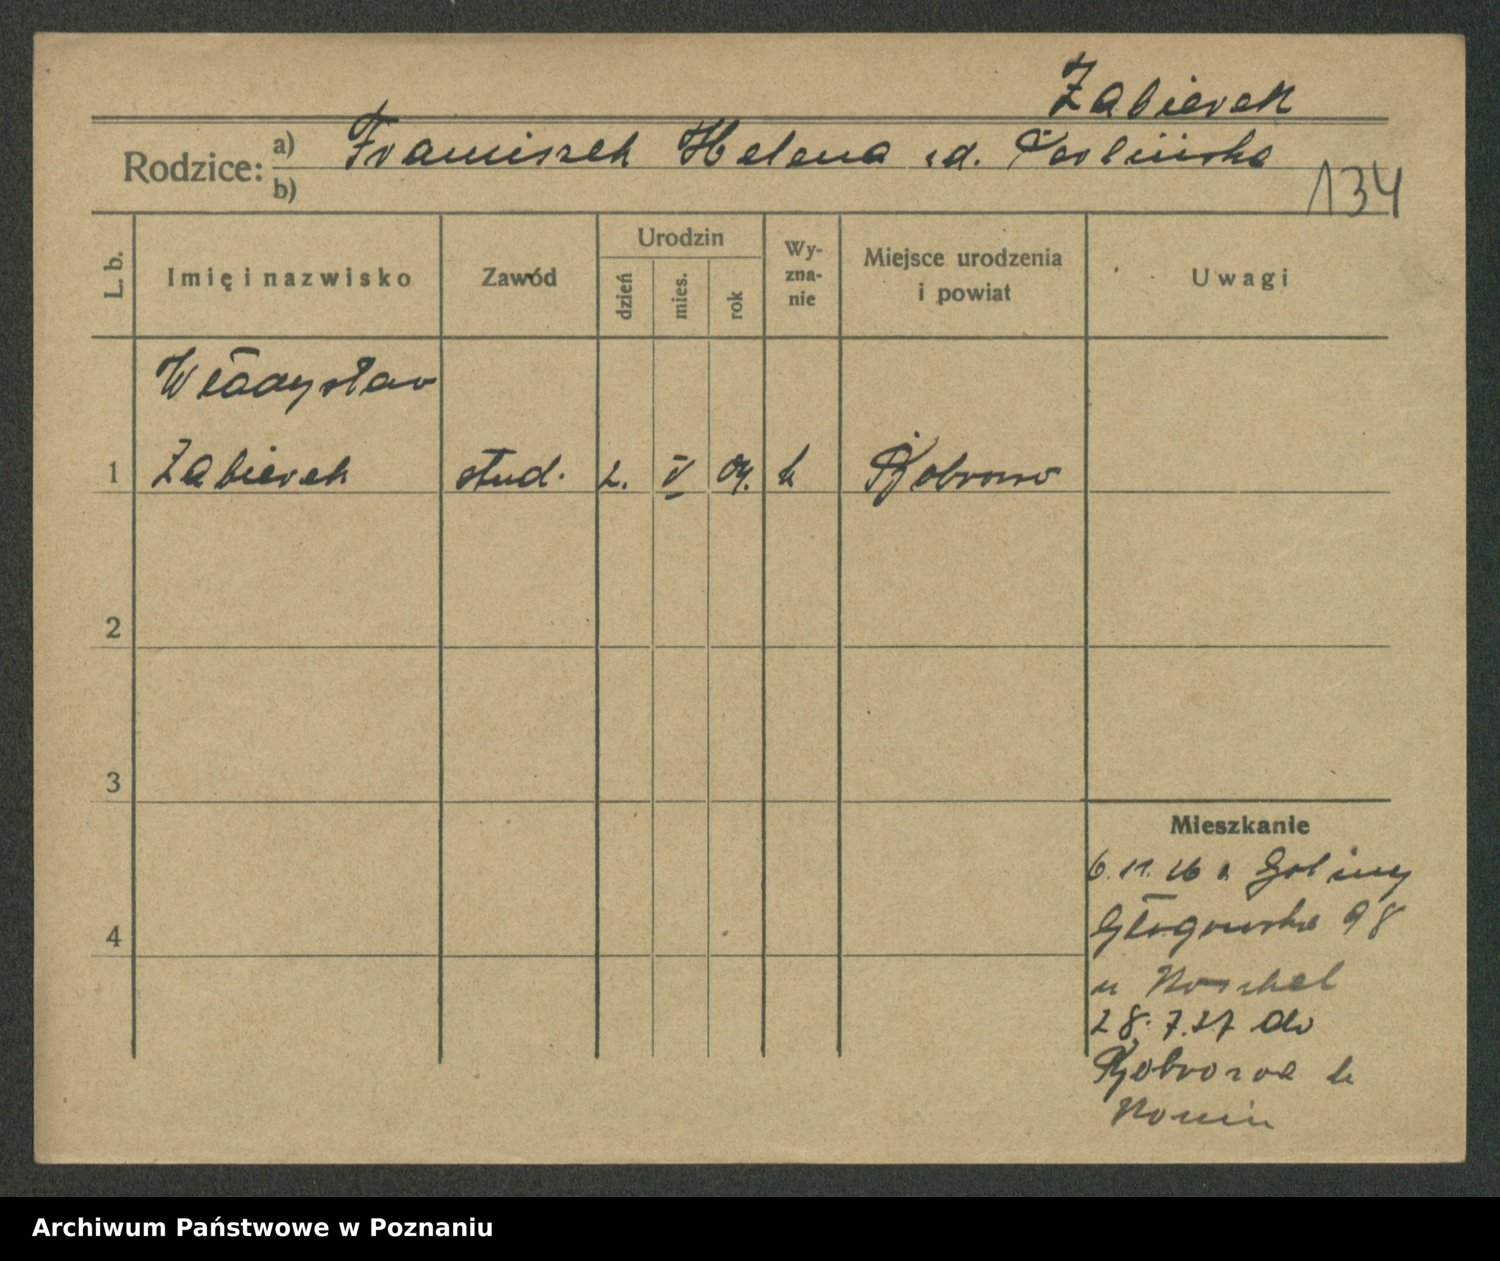 Zabierek
Rodzice: a) Franciszek Helena z d.
b)
134
L. b.
Imię i nazwisko
Zawód
Urodzin
dzień
mies.
rok
Wy-
zna-
nie
Miejsce urodzenia
i powiat
Uwagi
Władysław
1 Zabierek stud. 2. V 04. k Bobrowo
2
3
4
Mieszkanie
6.11.26 z Goliny
Głogowska 98
u Noschel
28.7.27 do
k
Konin
Archiwum Państwowe w Poznaniu